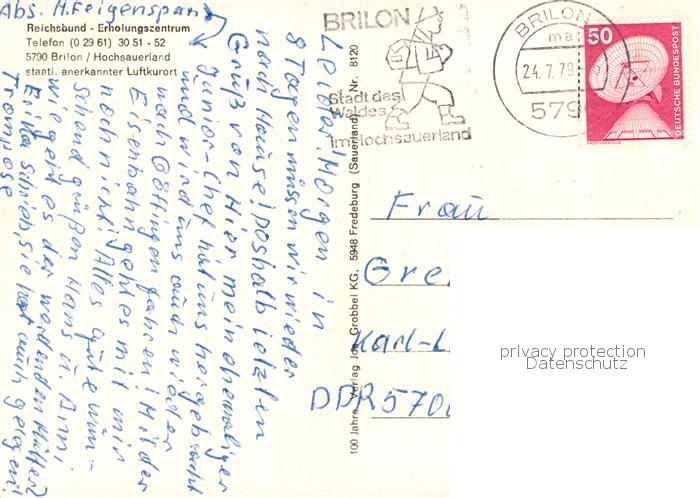 Abs. H. Feigenspan
Reichsbund - Erholungszentrum
Telefon (0 29 61) 30 51 - 52
5790 Brilon / Hochsauerland
staatl. anerkannter Luftkurort
Leider! Morgen in
8 Tagen müssen wir wieder
nach Hause! Deshalb letzten
Gruß von Hier mein ehemaliger
Junior-Chef hat uns hergebracht
und wird uns auch wieder
nach Göttingen fahren! Mit der
Eisenbahn geht es mit mir
noch nicht! Alles gute wün-
schend grüßen Hans u. Anni
wie geht es der werdenden Mutter?
Erika schrieb, sie hat auch gelegen!
100 Jahre Verlag Jos. Grobbel KG, 5948 Fredeburg (Sauerland) Nr. 8120
BRILON
Stadt des
Waldes
im Hochsauerland
BRILON
ma
24.7.79
579
50
DEUTSCHE BUNDESPOST
Frau
Gre
Karl-L
DDR 570
privacy protection
Datenschutz